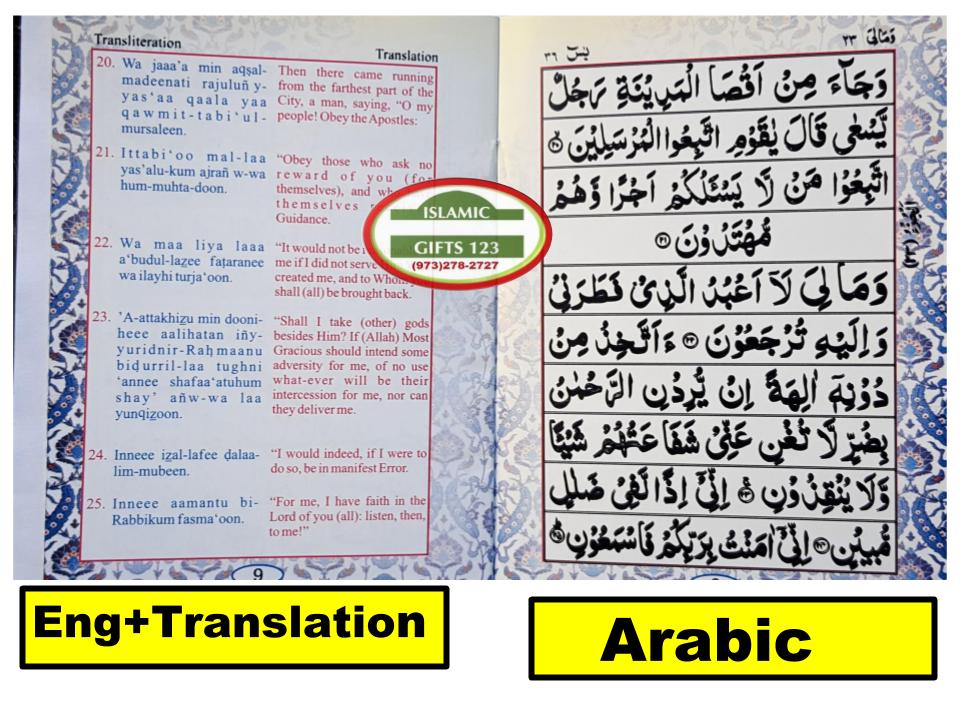 Transliteration
Translation
20. Wa jaaa’a min aqṣal-
madeenati rajuluñ y-
yas‘aa qaala yaa
qawmit-tabi‘ul-
mursaleen.
Then there came running
from the farthest part of the
City, a man, saying, “O my
people! Obey the Apostles:
21. Ittabi‘oo mal-laa
yas’alu-kum ajrañ w-wa
hum-muhta-doon.
“Obey those who ask no
reward of you (for
themselves), and who
themselves
Guidance.
22. Wa maa liya laaa
a‘budul-lazee faṭaranee
wa ilayhi turja‘oon.
“It would not be
me if I did not serve
created me, and to Whom
shall (all) be brought back.
23. ’A-attakhiẕu min dooni-
heee aalihatan iñy-
yuridnir-Raḥmaanu
biḍurril-laa tughni
‘annee shafaa‘atuhum
shay’ añw-wa laa
yunqiẕoon.
“Shall I take (other) gods
besides Him? If (Allah) Most
Gracious should intend some
adversity for me, of no use
what-ever will be their
intercession for me, nor can
they deliver me.
24. Inneee iẕal-lafee ḍalaa-
lim-mubeen.
“I would indeed, if I were to
do so, be in manifest Error.
25. Inneee aamantu bi-
Rabbikum fasma‘oon.
“For me, I have faith in the
Lord of you (all): listen, then,
to me!”
9
ISLAMIC
GIFTS 123
(973)278-2727
يٰسٓ ٣٦
وَمَالِيَ ٢٣
وَجَآءَ مِنْ اَقْصَا الْمَدِيْنَةِ رَجُلٌ
يَّسْعٰى قَالَ يٰقَوْمِ اتَّبِعُوا الْمُرْسَلِيْنَ ۙ‏﴿۲۰﴾
اتَّبِعُوْا مَنْ لَّا يَسْئَلُكُمْ اَجْرًا وَّهُمْ
مُّهْتَدُوْنَ ﴿۲۱﴾
وَمَا لِيَ لَآ اَعْبُدُ الَّذِيْ فَطَرَنِيْ
وَاِلَيْهِ تُرْجَعُوْنَ ﴿۲۲﴾ ءَاَتَّخِذُ مِنْ
دُوْنِهٖٓ اٰلِهَةً اِنْ يُّرِدْنِ الرَّحْمٰنُ
بِضُرٍّ لَّا تُغْنِ عَنِّيْ شَفَاعَتُهُمْ شَيْئًا
وَّلَا يُنْقِذُوْنِ ﴿۲۳﴾ اِنِّيْٓ اِذًا لَّفِيْ ضَلٰلٍ
مُّبِيْنٍ ﴿۲۴﴾ اِنِّيْٓ اٰمَنْتُ بِرَبِّكُمْ فَاسْمَعُوْنِ ﴿۲۵﴾
Eng+Translation
Arabic